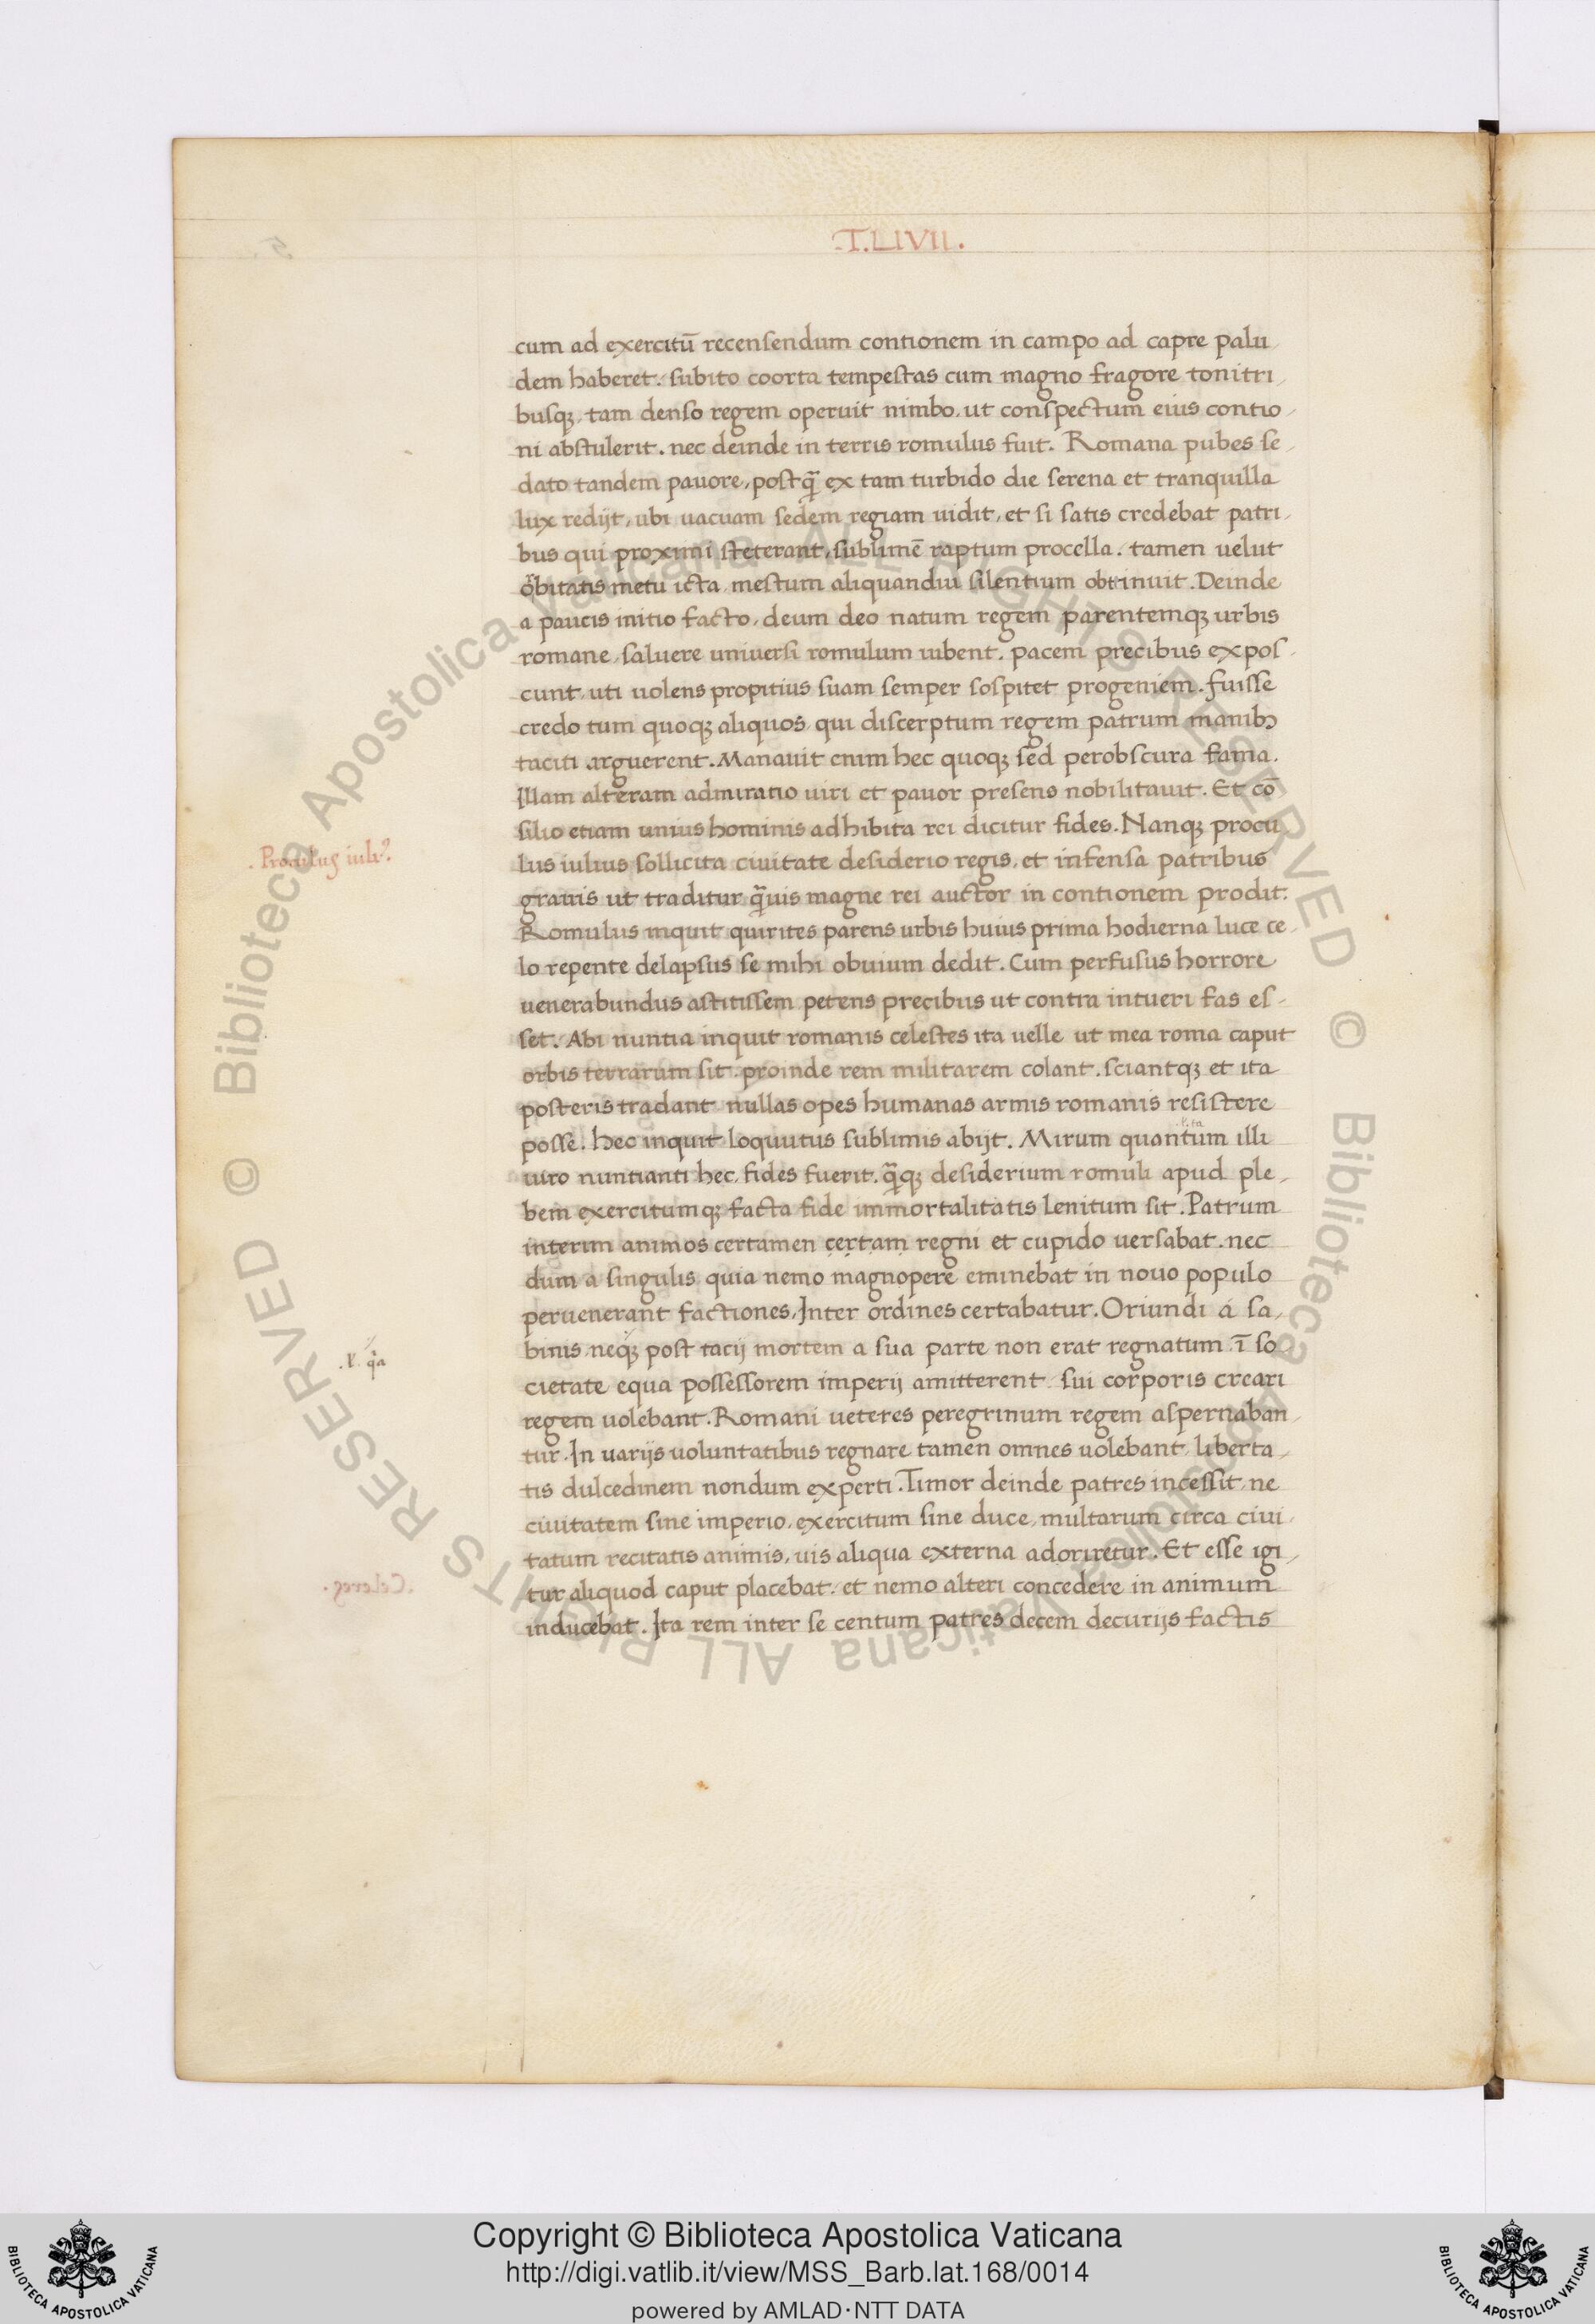 .T.LIVII.
cum ad exercitū recensendum contionem in campo ad capre palu
dem haberet. subito coorta tempestas cum magno fragore tonitri
busqꝫ, tam denso regem operuit nimbo, ut conspectum eius contio
ni abstulerit. nec deinde in terris romulus fuit. Romana pubes se
dato tandem pauore, postq̄ ex tam turbido die serena et tranquilla
lux redijt, ubi uacuam sedem regiam uidit, et si satis credebat patri
bus qui proximi steterant, sublimē raptum procella. tamen uelut
orbitatis metu icta mestum aliquandiu silentium obtinuit. Deinde
a paucis initio facto, deum deo natum regem parentemqꝫ urbis
romane, saluere uniuersi romulum iubent. pacem precibus expos
cunt, uti uolens propitius suam semper sospitet progeniem. fuisse
credo tum quoqꝫ aliquos, qui discerptum regem patrum manibꝫ
taciti arguerent. Manauit enim hec quoqꝫ sed perobscura fama.
Illam alteram admiratio uiri et pauor presens nobilitauit. Et cō
silio etiam unius hominis adhibita rei dicitur fides. Nanqꝫ procu
.Proculus iuliꝰ.
lus iulius sollicita ciuitate desiderio regis, et infensa patribus
grauis ut traditur q̄uis magne rei auctor in contionem prodit.
Romulus inquit quirites parens urbis huius prima hodierna luce ce
lo repente delapsus se mihi obuium dedit. Cum perfusus horrore
uenerabundus astitissem petens precibus ut contra intueri fas es-
set. Abi nuntia inquit romanis celestes ita uelle ut mea roma caput
orbis terrarum sit. proinde rem militarem colant. sciantqꝫ et ita
posteris tradant nullas opes humanas armis romanis resistere
posse. hec inquit loquutus sublimis abijt. Mirum quantum illi
uiro nuntianti hec, fides fuerit. q̄qꝫ desiderium romuli apud ple
bem exercitumqꝫ facta fide immortalitatis lenitum sit. Patrum
interim animos certamen certam regni et cupido uersabat. nec
dum a singulis quia nemo magnopere eminebat in nouo populo
peruenerant factiones, Inter ordines certabatur. Oriundi a sa
binis neqꝫ post tacij mortem a sua parte non erat regnatum ī so
.l. qa
cietate equa possessorem imperij amitterent sui corporis creari
regem uolebant. Romani ueteres peregrinum regem aspernaban
tur. In uarijs uoluntatibus regnare tamen omnes uolebant, liberta
tis dulcedinem nondum experti. Timor deinde patres incessit, ne
ciuitatem sine imperio, exercitum sine duce, multarum circa ciui
tatum recitatis animis, uis aliqua externa adoriretur. Et esse igi
tur aliquod caput placebat. et nemo alteri concedere in animum
inducebat. Ita rem inter se centum patres decem decurijs factis
© Biblioteca Apostolica Vaticana ALL RIGHTS RESERVED © Biblioteca Apostolica Vaticana ALL RIGHTS RESERVED
Copyright © Biblioteca Apostolica Vaticana
http://digi.vatlib.it/view/MSS_Barb.lat.168/0014
powered by AMLAD·NTT DATA
BIBLIOTECA APOSTOLICA VATICANA
BIBLIOTECA APOSTOLICA VATICANA